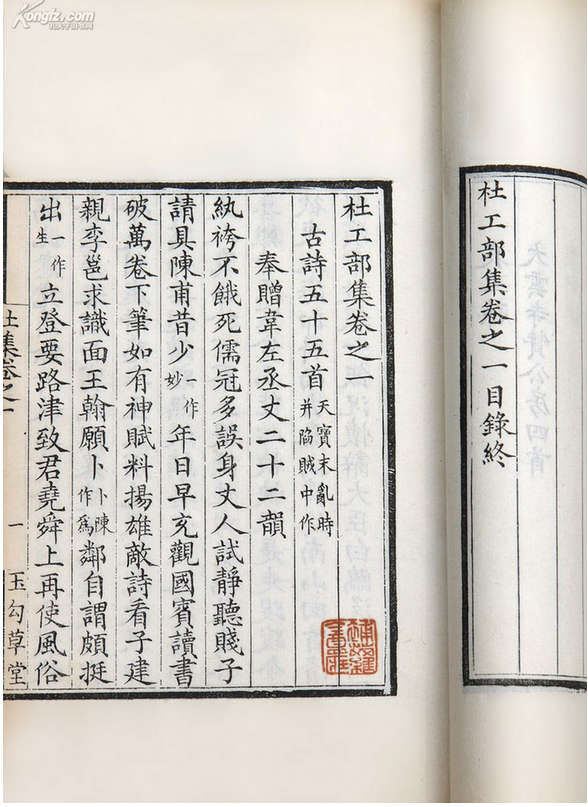 Kongfz.com
杜工部集卷之一目錄終
杜工部集卷之一
古詩五十五首天寶末亂時并陷賊中作
奉贈韋左丞丈二十二韻
紈袴不餓死儒冠多誤身丈人試靜聽賤子
請具陳甫昔少一作妙年日早充觀國賓讀書
破萬卷下筆如有神賦料揚雄敵詩看子建
親李邕求識面王翰願卜卜陳作為鄰自謂頗挺
出一作生立登要路津致君堯舜上再使風俗
杜集卷之一
一
玉勾草堂